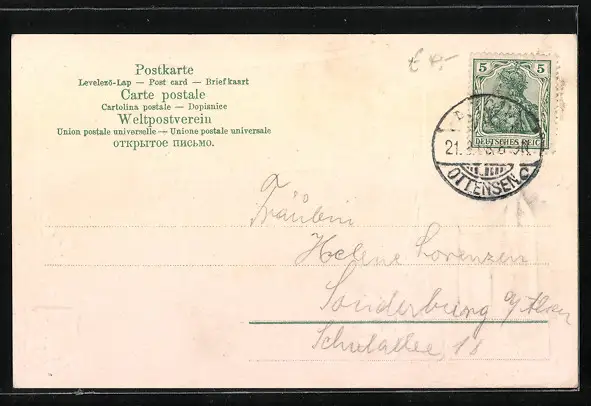 Postkarte
Levelező-Lap — Post card — Brief kaart
Carte postale
Cartolina postale — Dopisnice
Weltpostverein
Union postale universelle — Unione postale universale
ОТКРЫТОЕ ПИСЬМО.
5 5
DEUTSCHES REICH
21.
OTTENSEN
Fräulein
Helene Lorenzen
Sonderburg a/Alsen
Schulallee 18